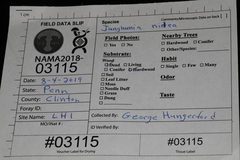 1 cm
FIELD DATA SLIP
NAMA2018-
03115
Date: 8-9-2018
State: Penn
County: Clinton
Foray ID:
Site Name: LH1
MO/iNat #:
#03115
Voucher Label for Drying
Species
Junghuhnia nitida
Field Photos:
Yes No
Substrate:
Wood
Dead Living
Conifer Hardwood
Soil
Leaf Litter
Moss
Needle Duff
Grass
Dung
Nearby Trees
Hardwood Conifer
Other/Species:
Habit
Single Few Many
Odor
Taste
Collected By: George Hungerford
ID Verified By:
#03115
Tissue Label